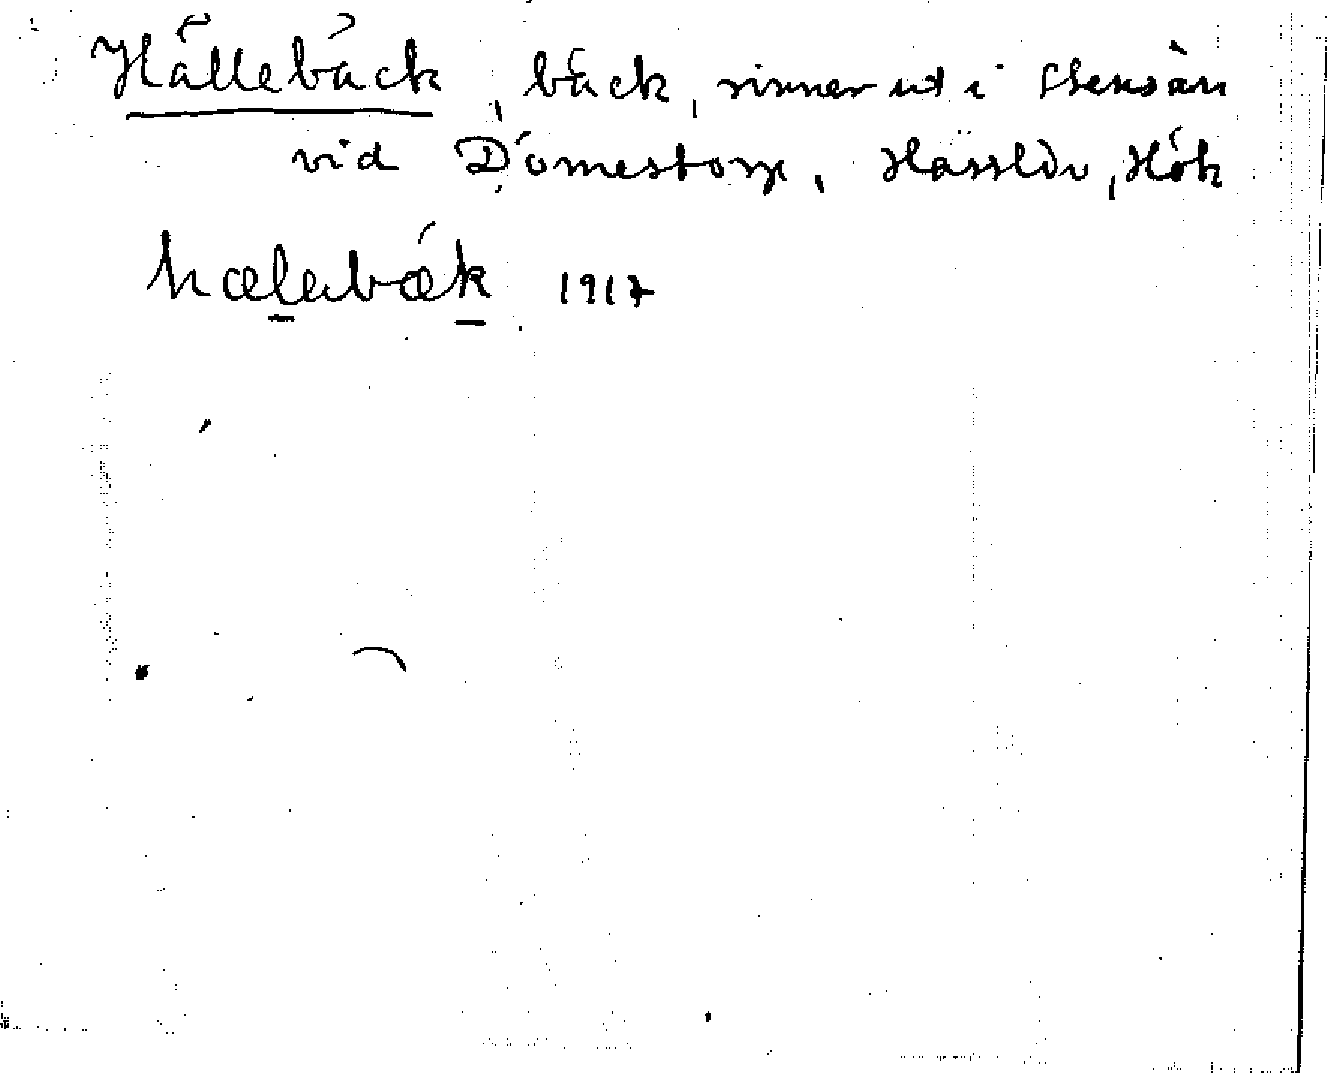 Hällebäck, bäck, rinner ut i Stensån
vid Dömestorp, Hasslöv, Hök
hælabæk 1917